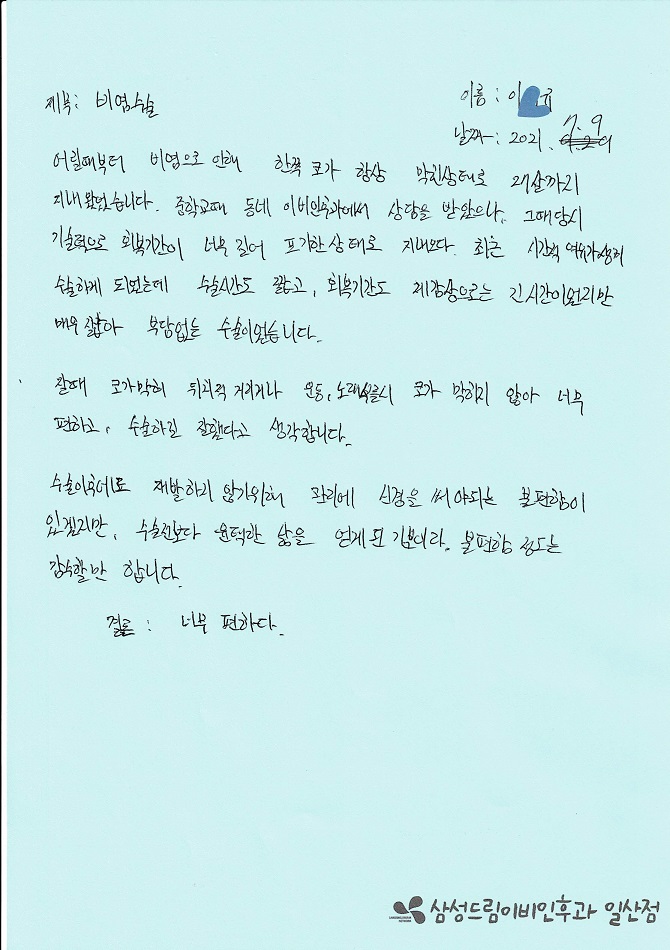 제목: 비염수술
이름: 이 규
날짜: 2021. 7. 9
어릴때부터 비염으로 인해 한쪽 코가 항상 막힌상태로 21살까지
지내왔었습니다. 중학교때 동네 이비인후과에서 상담을 받았으나, 그때당시
기술력으로 회복기간이 너무 길어 포기한상태로 지내오다. 최근 시간적 여유가생겨
수술하게 되었는데 수술시간도 짧고, 회복기간도 제감상으로는 긴시간이었지만
매우 짧아 부담없는 수술이었습니다.
잘때 코가막혀 뒤척거리거나 운동, 노래부를시 코가 막히지 않아 너무
편하고, 수술하길 잘했다고 생각합니다.
수술이후에도 재발하지 않기위해 관리에 신경을 써야되는 불편함이
있겠지만, 수술전보다 윤택한 삶을 얻게된 기분이라. 불편함 정도는
감수할만 합니다.
결론 : 너무 편하다.
삼성드림이비인후과 일산점